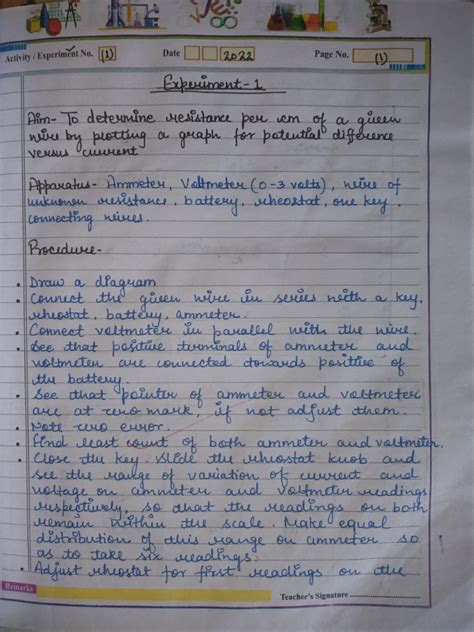 Activity / Experiment No. (1) Date 2022 Page No. (1)
Experiment-1
Aim- To determine resistance per cm of a given
wire by plotting a graph for potential difference
versus current
Apparatus- Ammeter, Voltmeter (0-3 volts), wire of
unknown resistance, battery, rheostat, one key,
connecting wires.
Procedure-
• Draw a diagram
• Connect the given wire in series with a key,
rheostat, battery, ammeter.
• Connect voltmeter in parallel with the wire.
• See that positive terminals of ammeter and
voltmeter are connected towards positive of
the battery.
• See that pointer of ammeter and voltmeter
are at zero mark, if not adjust them.
• Note zero error.
• Find least count of both ammeter and voltmeter.
• Close the key. Slide the rheostat knob and
see the range of variation of current and
voltage on ammeter and voltmeter readings
respectively, so that the readings on both
remain within the scale. Make equal
distribution of this range on ammeter so
as to take six readings.
• Adjust rheostat for first readings on the
Remarks
Teacher's Signature